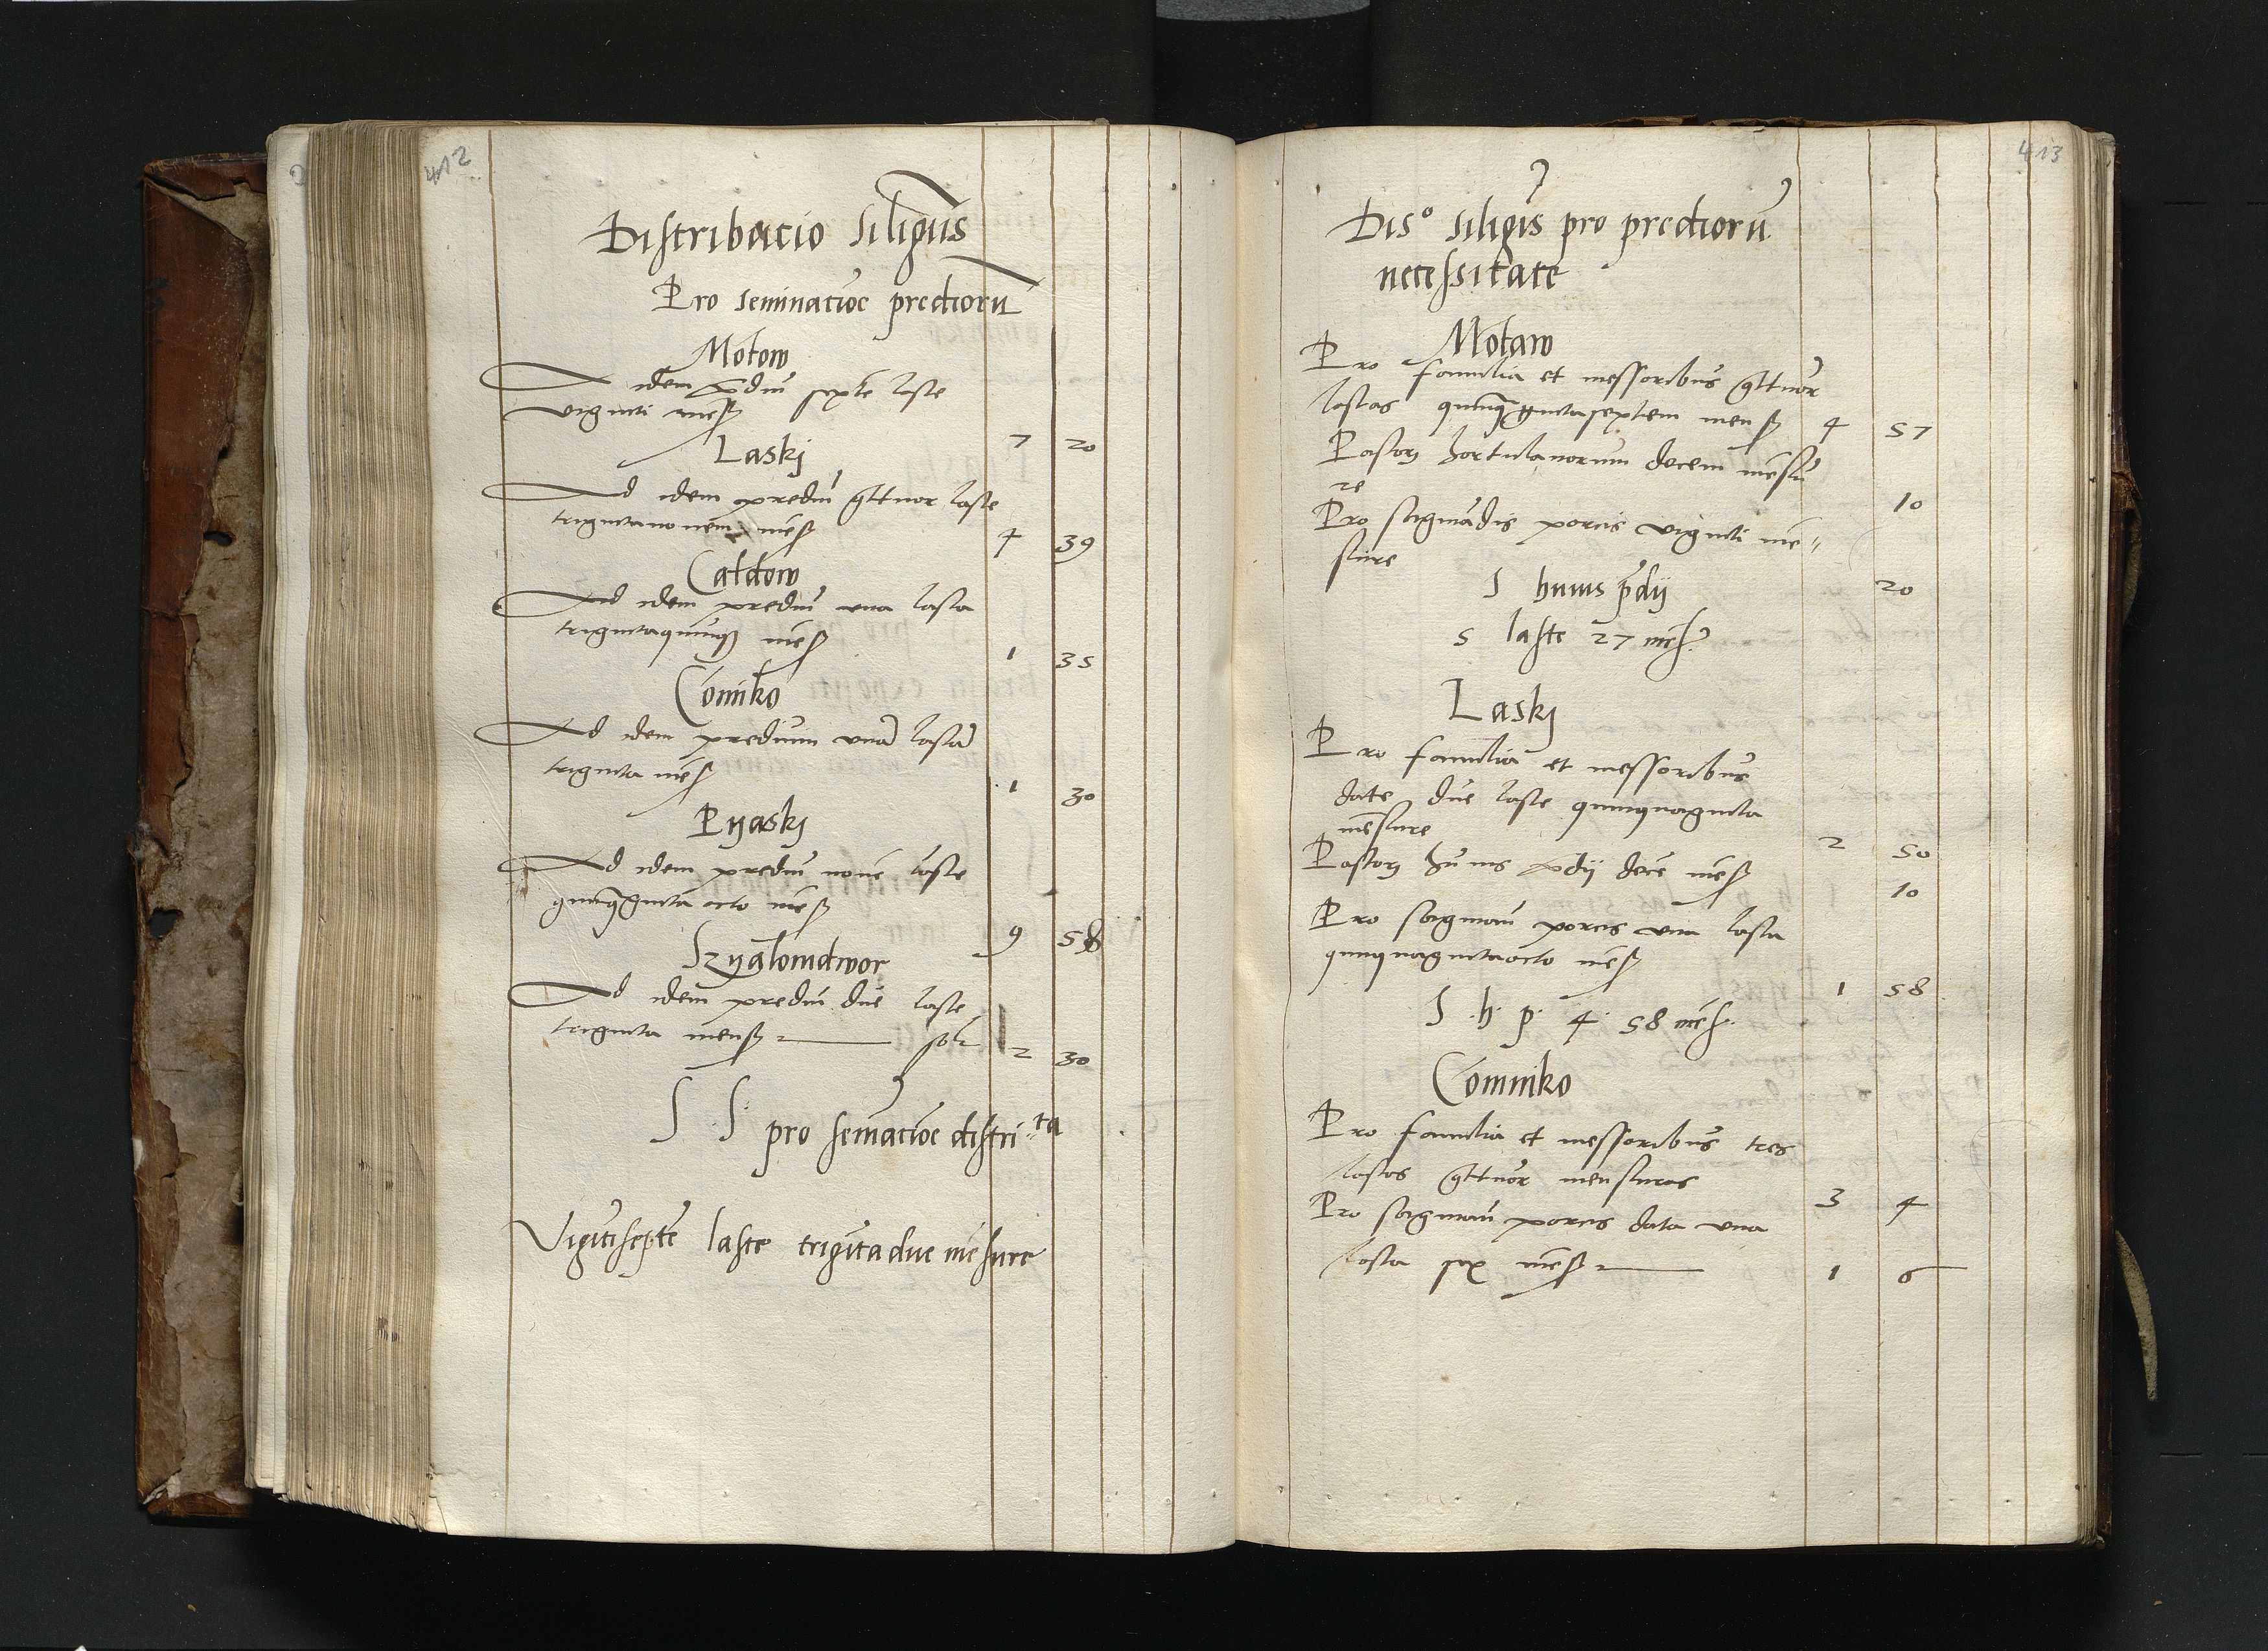 412
Distribucio siliginis
Pro seminacioe prediorū
Motow
Ad idem p̱diū septē laste
viginti mens̨ 7 20
Laskj
Ad idem prediū q̄ttuor laste
trigintanonem mēs̨ 4 39
Caldow
Ad idem prediū una lasta
trigintaquinqȝ mēs̨ 1 35
Comiko
Ad idem predium unā lastā
triginta mēs̨ 1 30
Pyaskj
Ad idem prediū novē laste
quinq̄ginta octo mēs̨ 9 58
Szyalomdwor
Ad idem prediū due laste
triginta mens̨ 2 30
S S pro seminacioe distri ta
Vigītiseptē laste trigīta due mēsure
413
Diso siligīs pro prediorū
necessitate
Motaw
Pro familia et messoribus q̄ttuor
lastas quinq̄gintaseptem mens̨ 4 57
Pastorj hortulanorum decem mēsu
re 10
Pro saginādis porcis viginti mē〃
sure 20
S huius p̄dij
5 laste 27 mēs
Laskj
Pro familia et messoribus
date due laste quinquaginta
mēsure 2 50
Pastorj huius p̱dij decē mēs̨ 10
Pro saginan̄ porcis una lasta
quinquagintaocto mēs̨ 1 58
S. h. p. 4. 58 mēs.
Comniko
Pro familia et messoribus tres
lastas q̄ttuor mensuras 3 4
Pro saginan̄ porcis data una
lasta sex mēs̨ 1 6